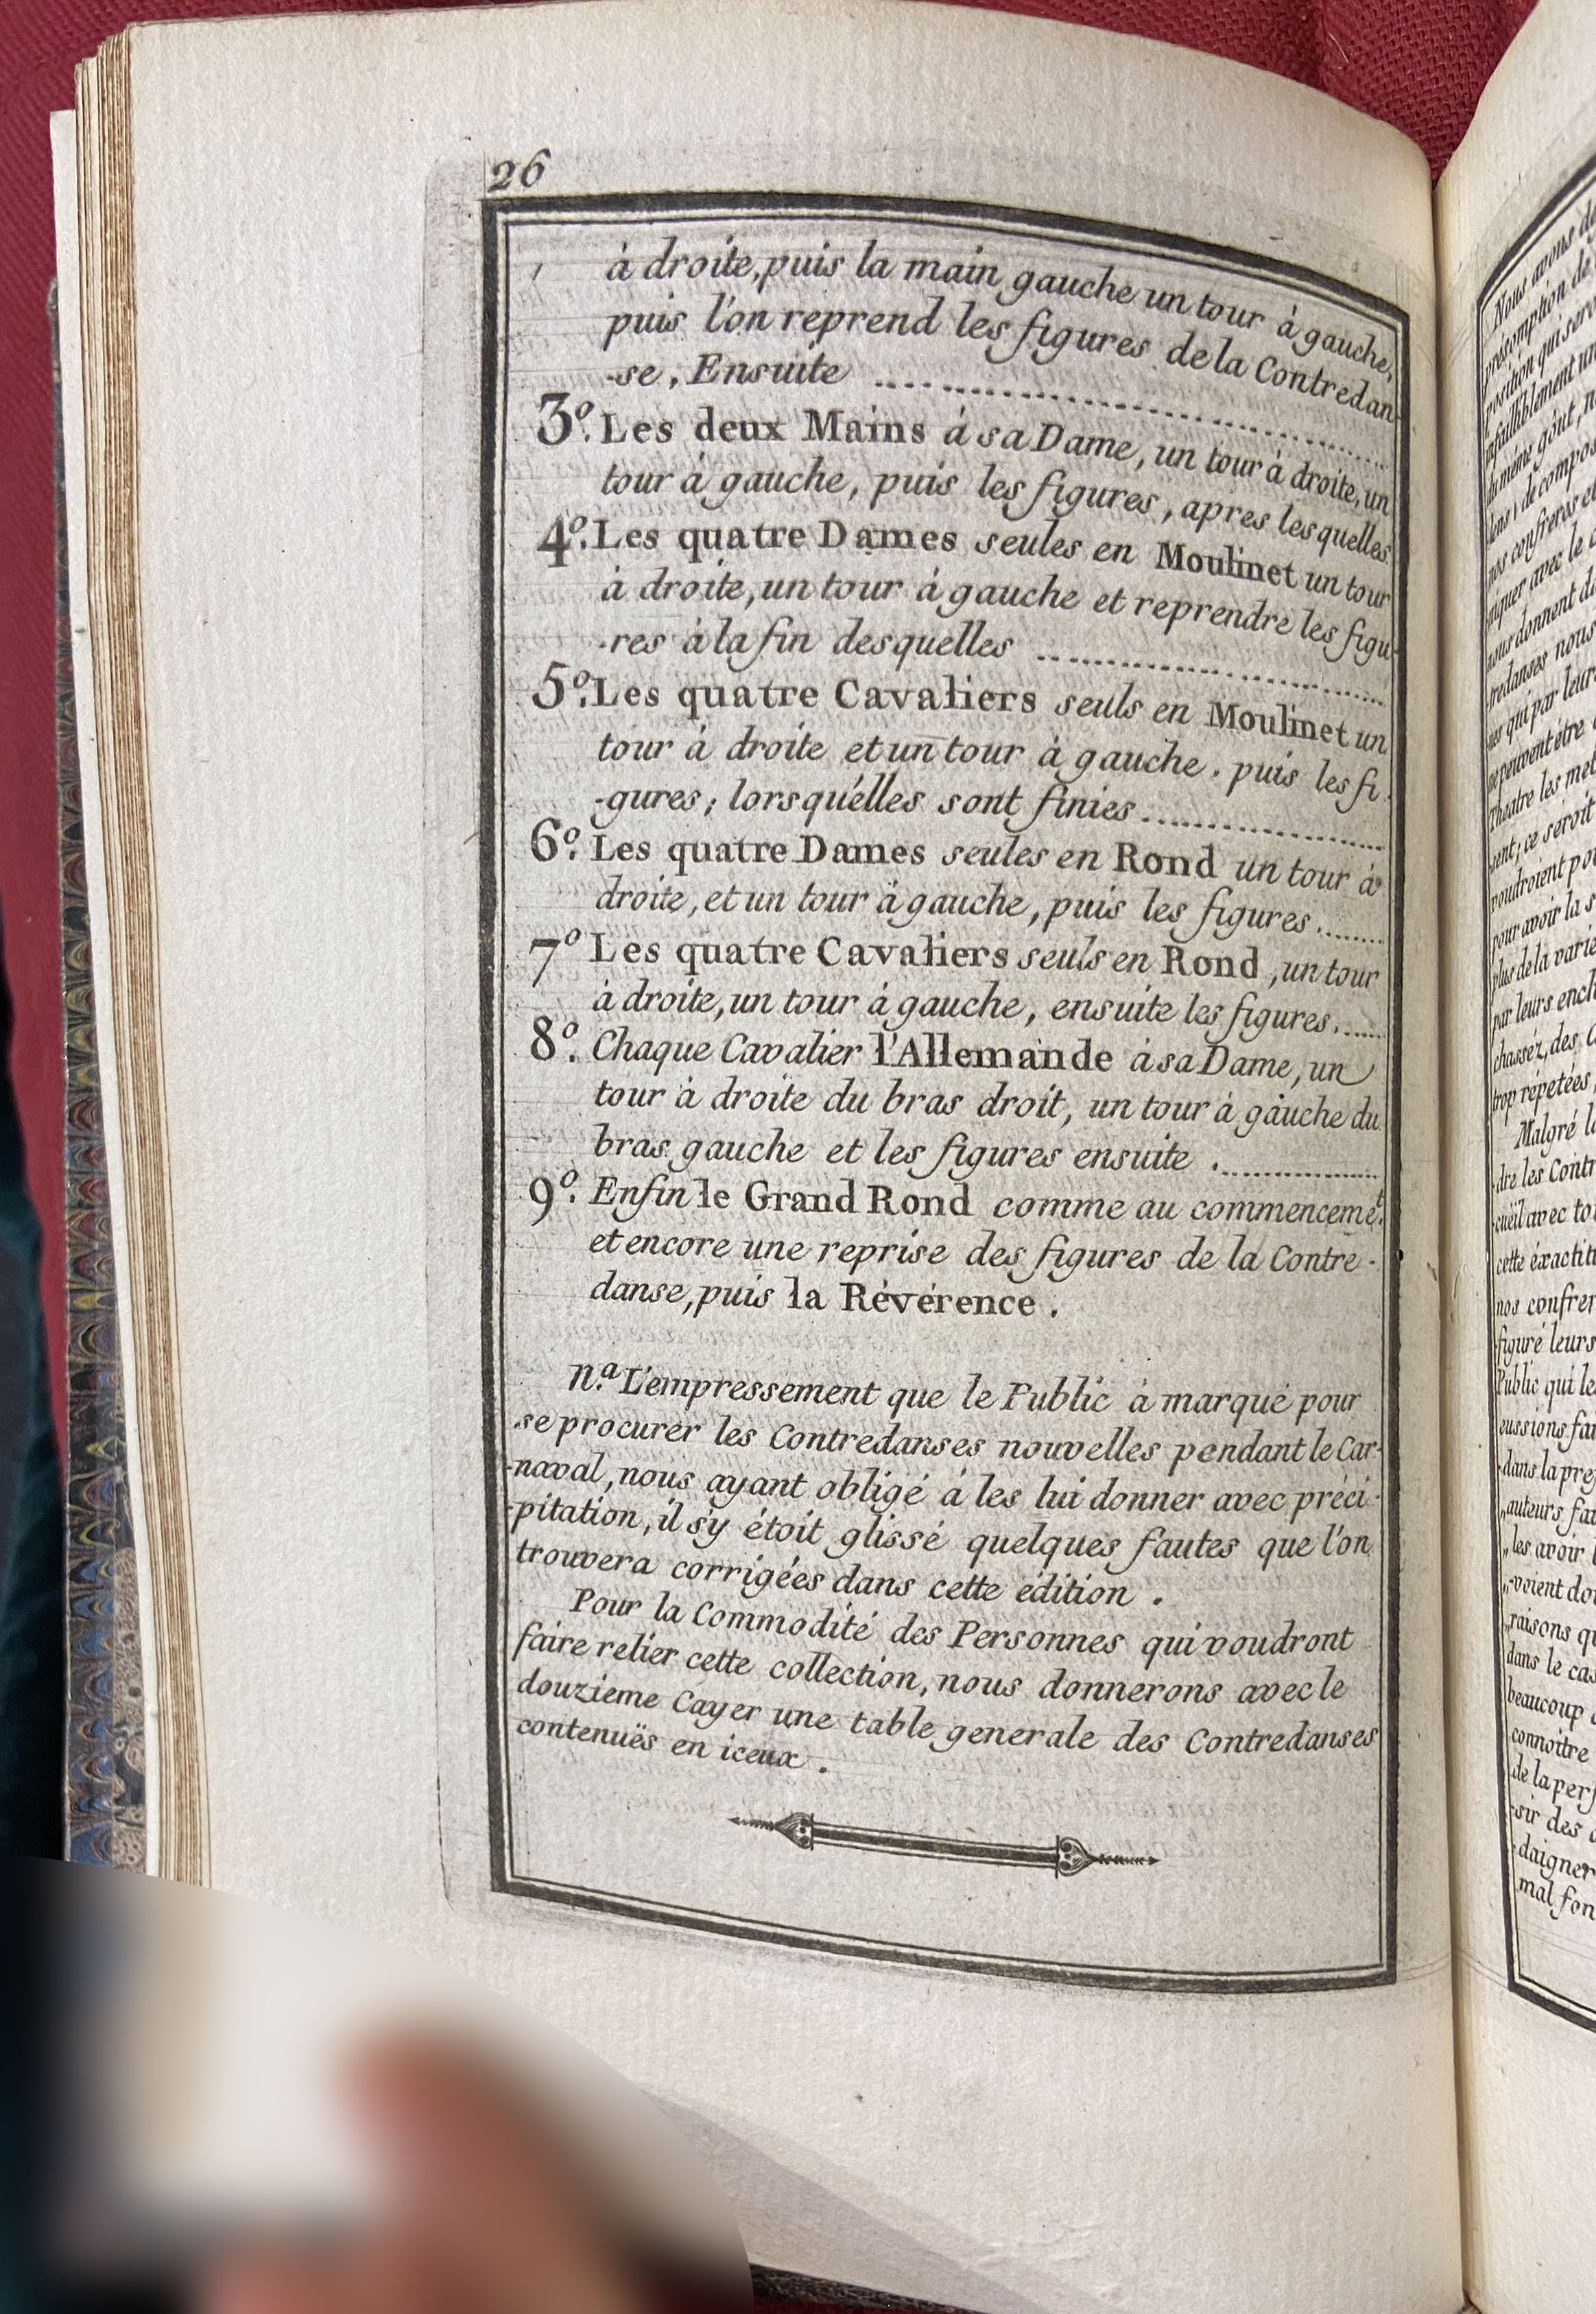 26
à droite, puis la main gauche un tour à gauche,
puis l'on reprend les figures de la Contredan
-se, Ensuite
3.º Les deux Mains à sa Dame, un tour à droite, un
tour à gauche, puis les figures, apres lesquelles
4.º Les quatre Dames seules en Moulinet un tour
à droite, un tour à gauche et reprendre les figu
-res à la fin desquelles
5.º Les quatre Cavaliers seuls en Moulinet un
tour à droite et un tour à gauche. puis les fi
-gures; lorsqu'élles sont finies
6.º Les quatre Dames seules en Rond un tour à
droite, et un tour à gauche, puis les figures.
7º Les quatre Cavaliers seuls en Rond, un tour
à droite, un tour à gauche, ensuite les figures.
8.º Chaque Cavalier l'Allemande à sa Dame, un
tour à droite du bras droit, un tour à gauche du
bras gauche et les figures ensuite.
9.º Enfin le Grand Rond comme au commencemet.
et encore une reprise des figures de la Contre-
danse, puis la Révérence.
n.ª L'empressement que le Public à marqué pour
se procurer les Contredanses nouvelles pendant le Car-
-naval, nous ayant obligé à les lui donner avec préci-
-pitation, il s'y étoit glissé quelques fautes que l'on
trouvera corrigées dans cette édition.
Pour la Commodité des Personnes qui voudront
faire relier cette collection, nous donnerons avec le
douzieme Cayer une table generale des Contredanses
contenuës en iceux.
Nous avons
présomption de
position qui
infailliblement un
du même goût,
dens, de
nos confreres et
niquer avec le
nous donnent
tredanses nous
nes qui par leur
ne peuvent être
Theatre les met
sent; ce seroit
voudroient pou
pour avoir la
plus de la varie
par leurs ench
chassez, des
trop répetées,
Malgré
dre les Contr
cueil avec
cette éxactitu
nos confrer
figuré leurs
Public qui le
eussions fai
dans la pre
auteurs
les avoir
-voient
raisons qu
dans le cas
beaucoup
connoitre
de la perf
sir des
daigner
mal fon